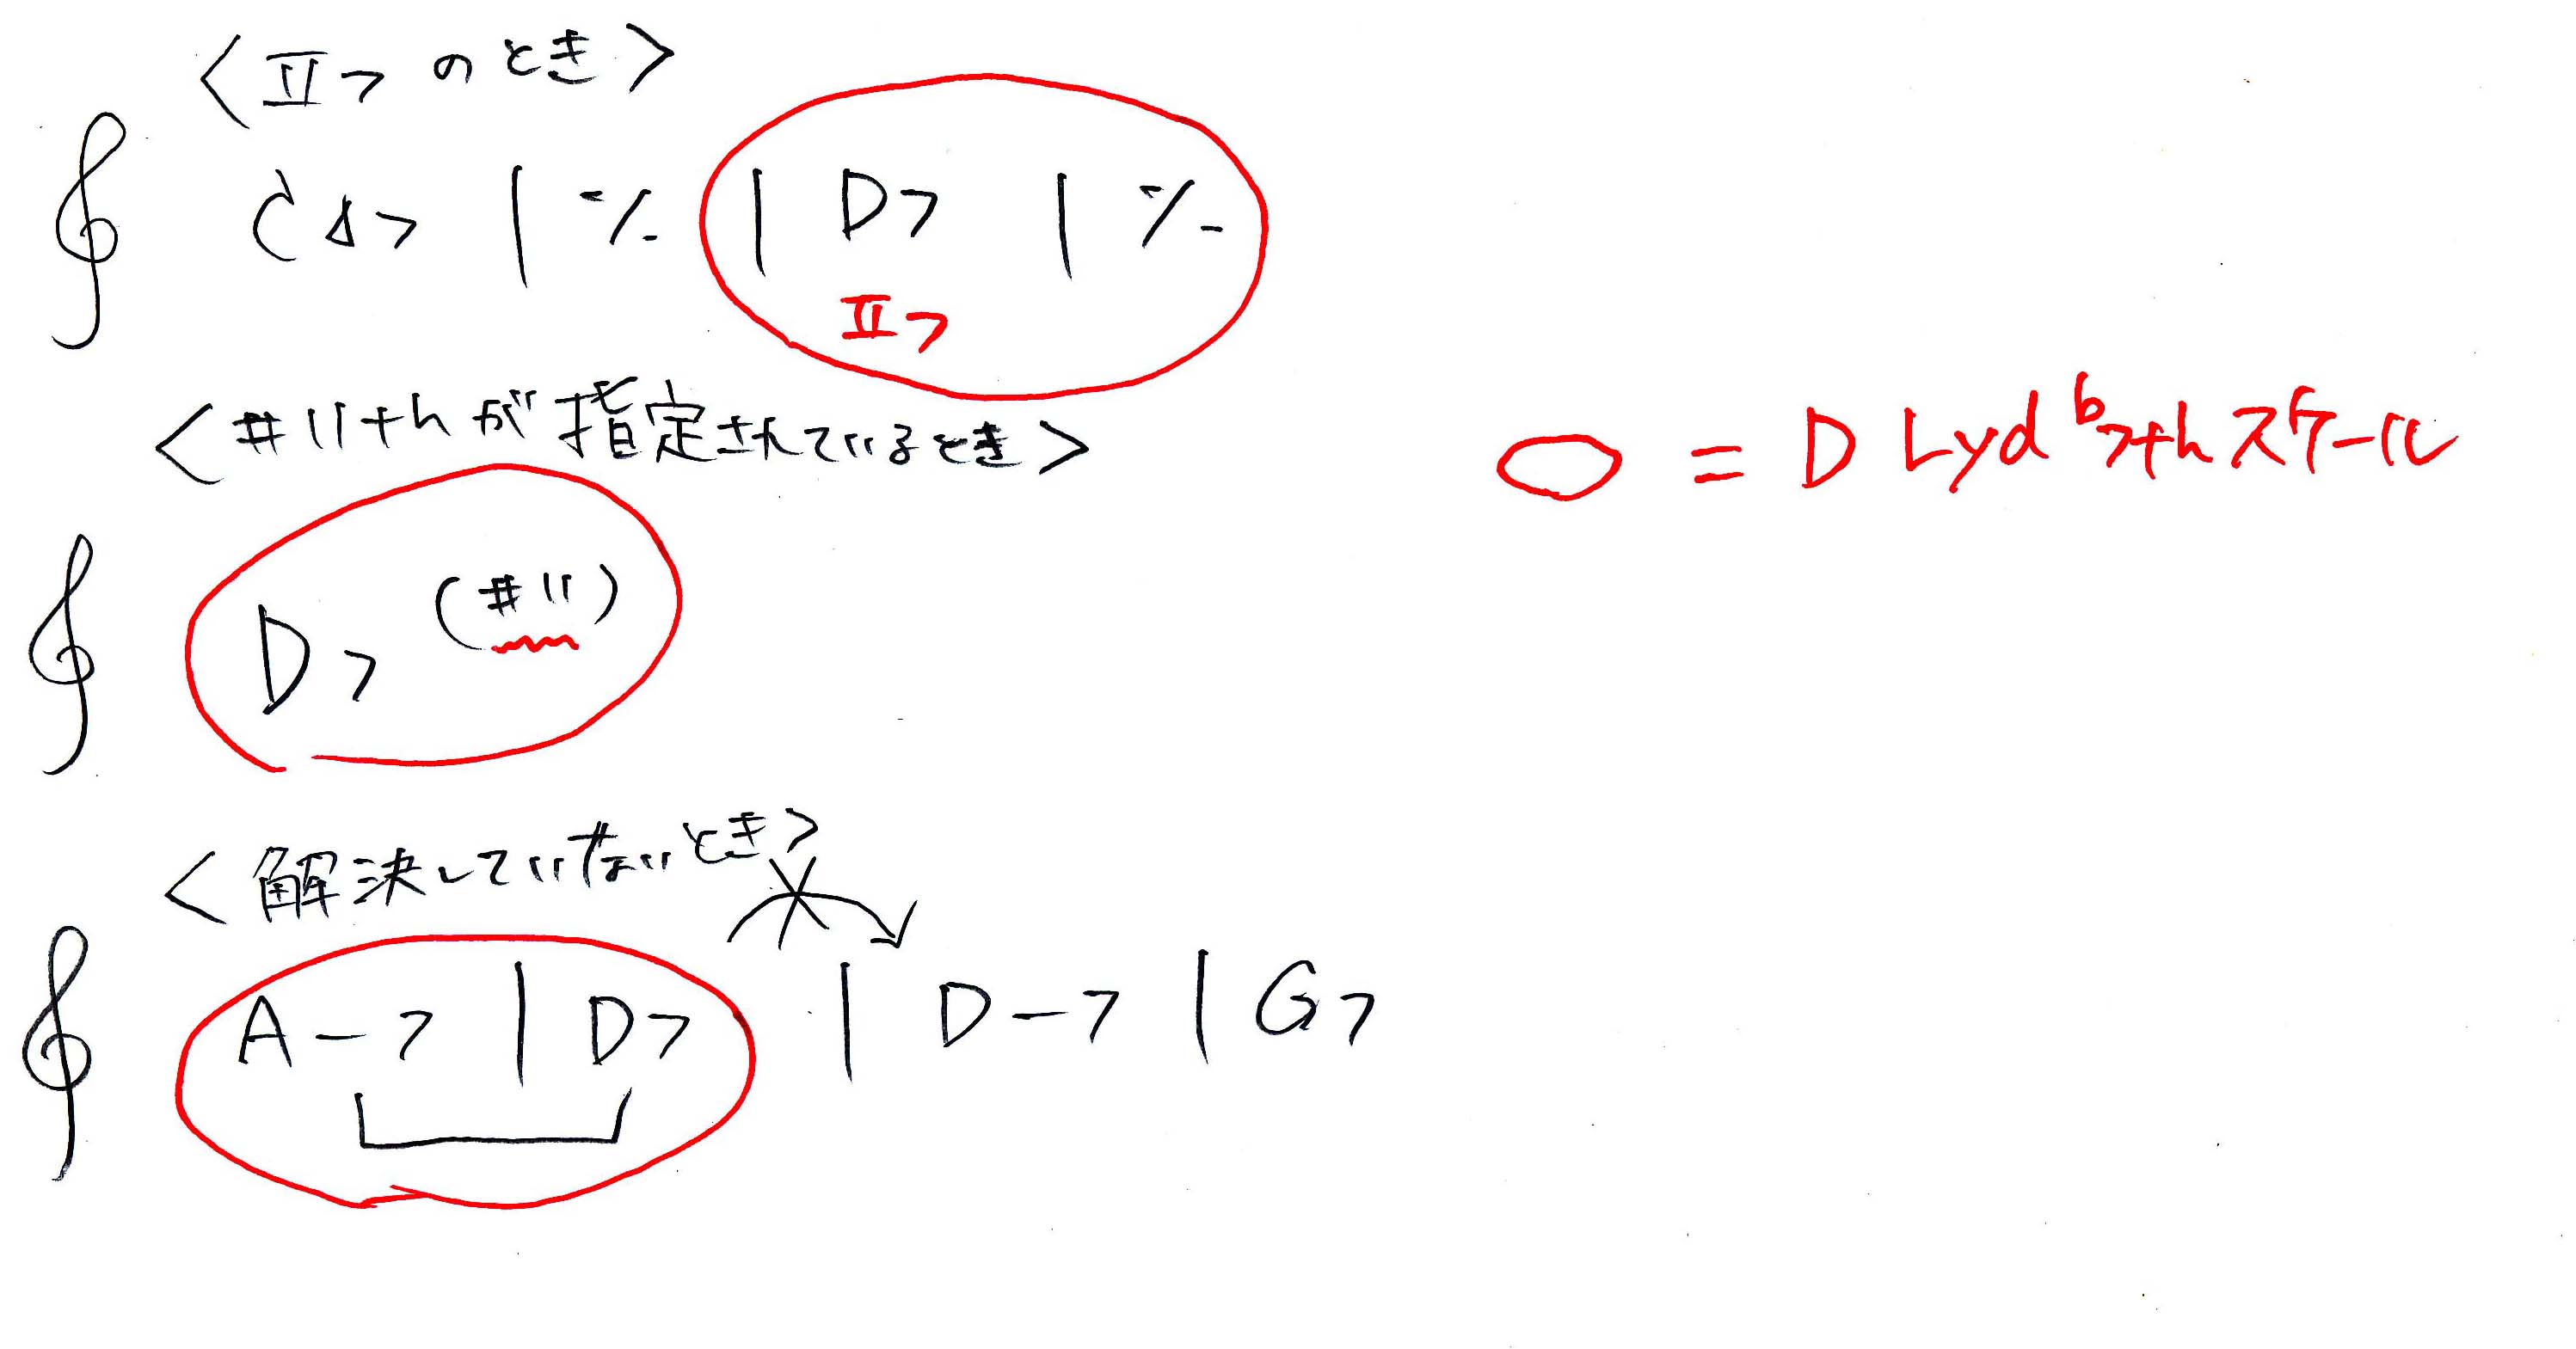 <Ⅱ7 のとき>
C△7 | ٪ | D7 | ٪
Ⅱ7
<#11thが指定されているとき>
= D Lyd♭7thスケール
D7(#11)
<解決していないとき>
A-7 | D7 | D-7 | G7